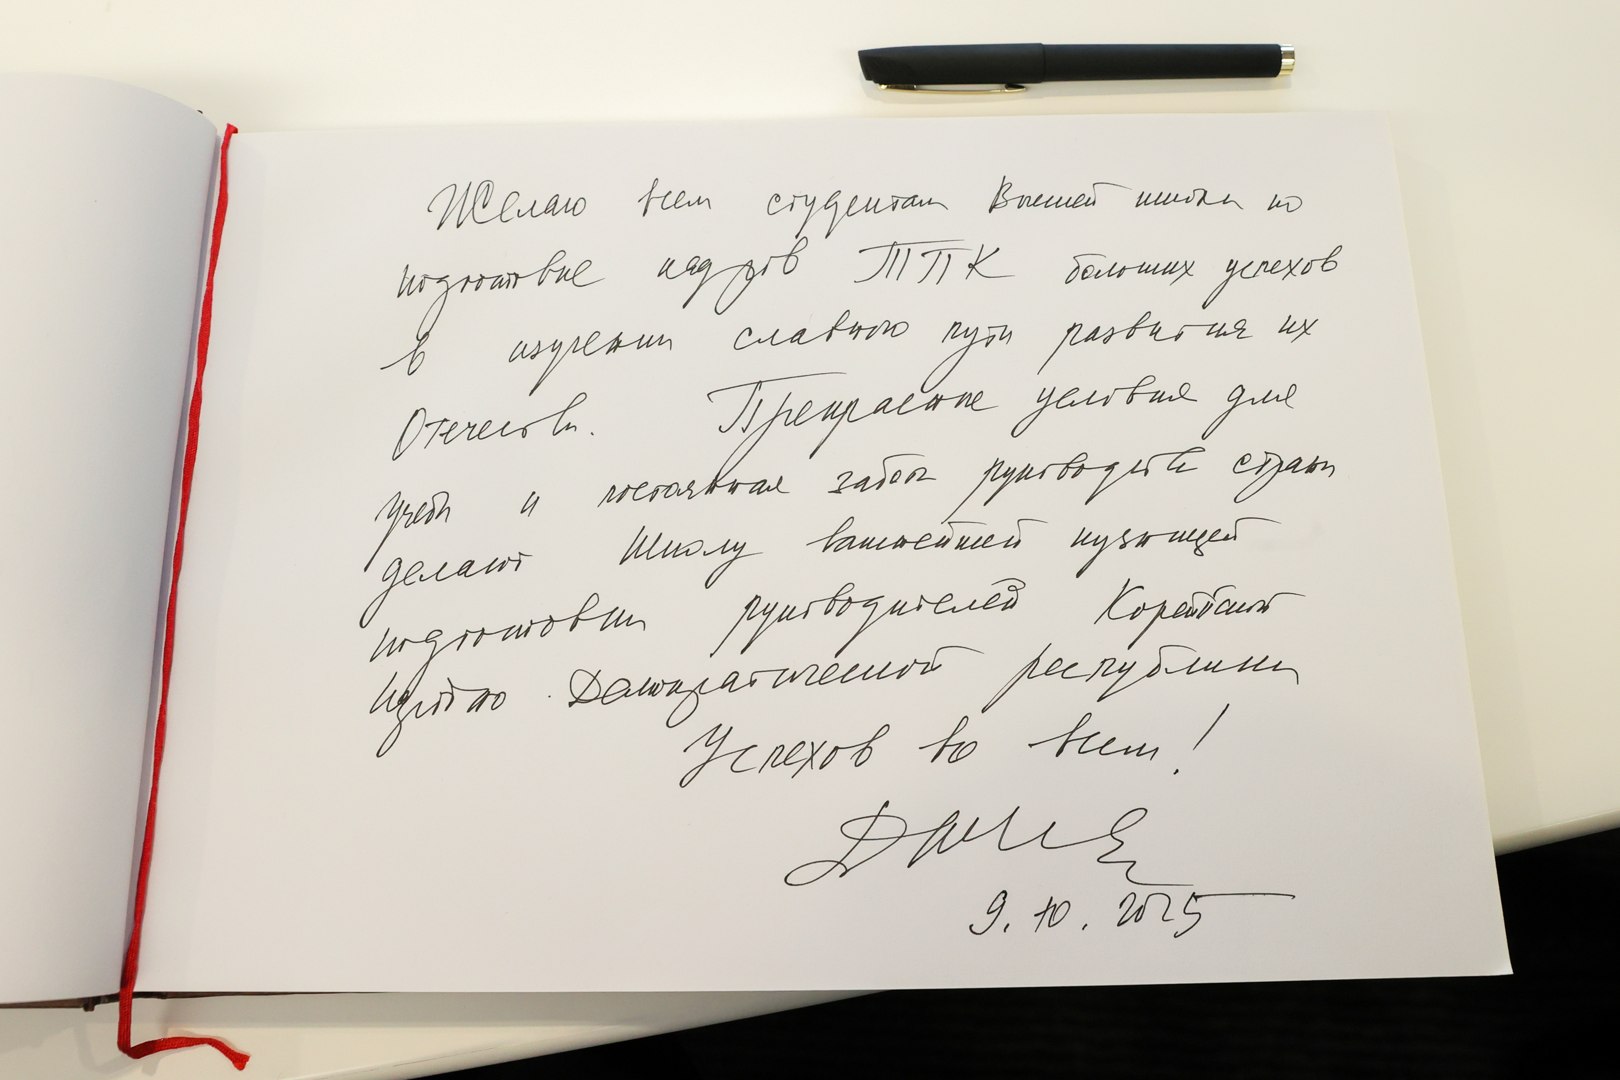 Желаю всем студентам Высшей школы по
подготовке кадров ТПК больших успехов
в изучении славного пути развития их
Отечества. Прекрасные условия для
учебы и постоянная забота руководства страны
делают Школу важнейшей кузницей
подготовки руководителей Корейской
Народно Демократической республики
Успехов во всем!
9.10.2025